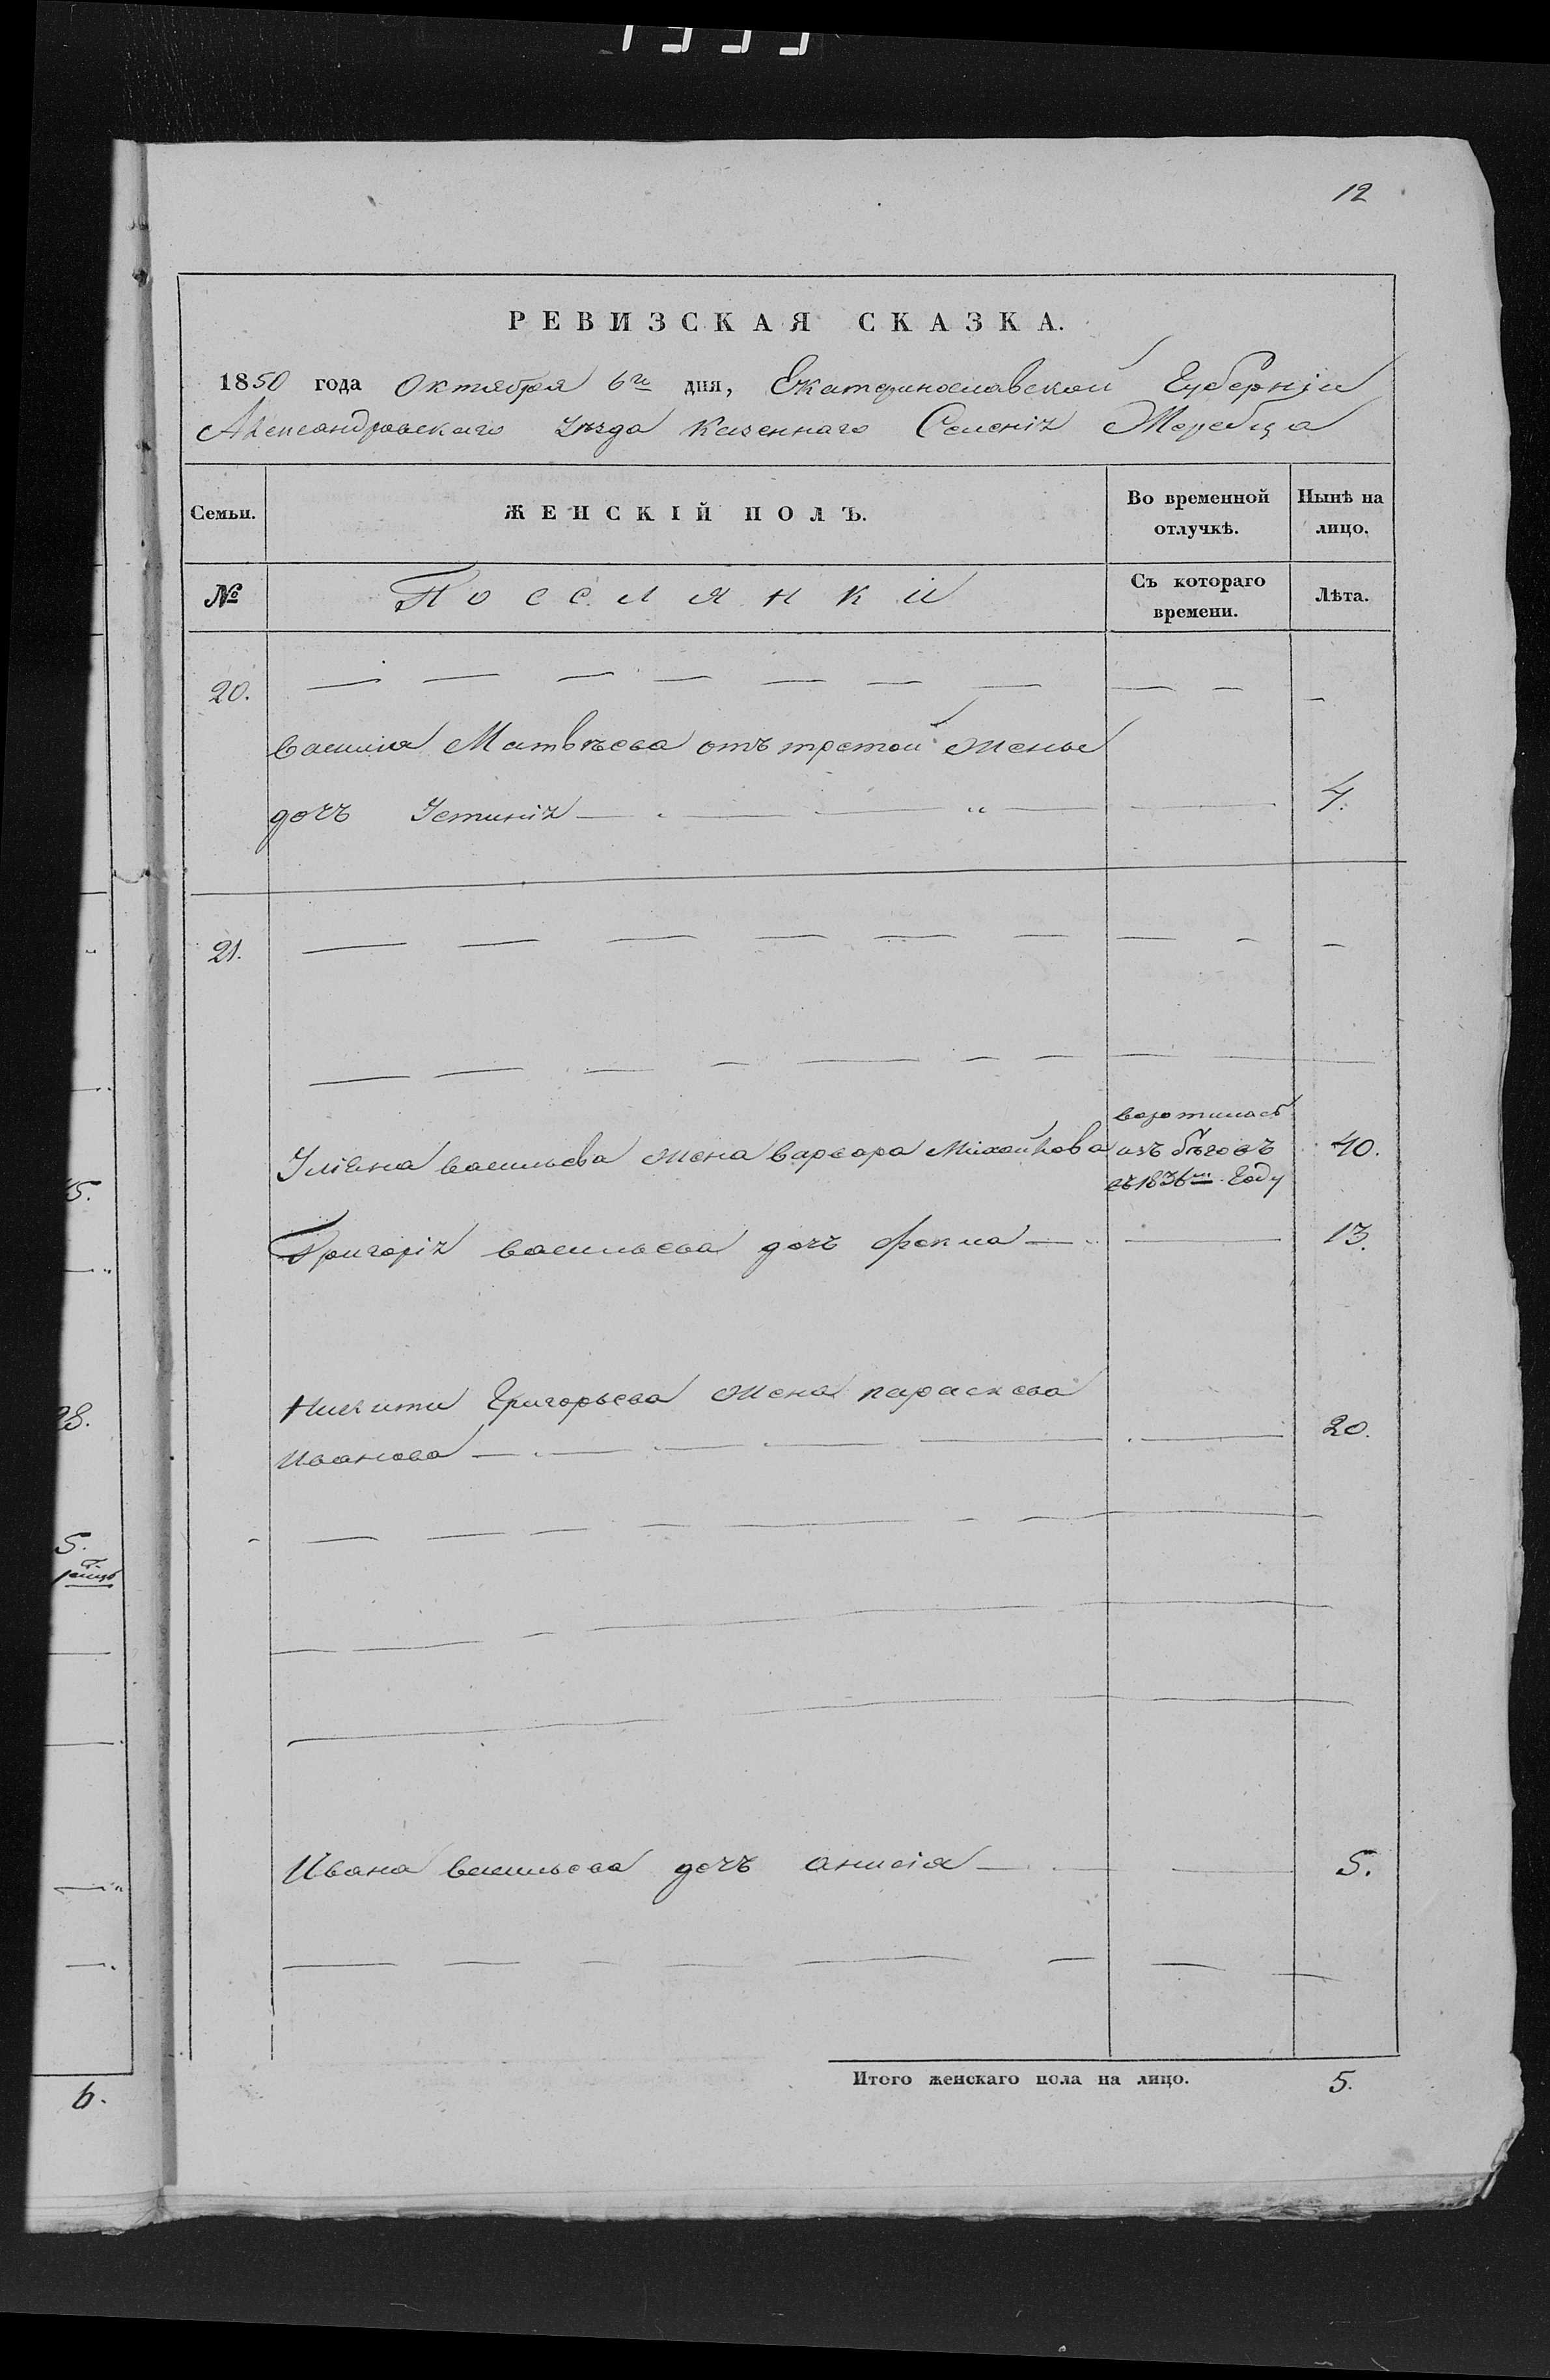 12
РЕВИЗСКАЯ СКАЗКА.
1850 года Октября 6го дня, Екатеринославской Губерніи
Александровскаго Уезда Казеннаго Селенія Жеребца
Семьи.
ЖЕНСКІЙ ПОЛЪ.
Во временной отлучкѣ.
Нынѣ на лицо.
№
Посселянки
Съ котораго времени.
Лѣта.
20.
василия Матвѣева отъ третой жены
дочъ Устинія 4.
21.
воротилась
Уліяна васильева жена варвара Михайлова изъ бѣговъ 40.
въ 1836м Году
Григорія васильева дочъ фекла 13.
Никиты Григорьева жена параскева
Иванова 20.
Ивана васильева дочъ анисія 5.
Итого женскаго пола на лицо. 5.
5.
8.
5.
6.